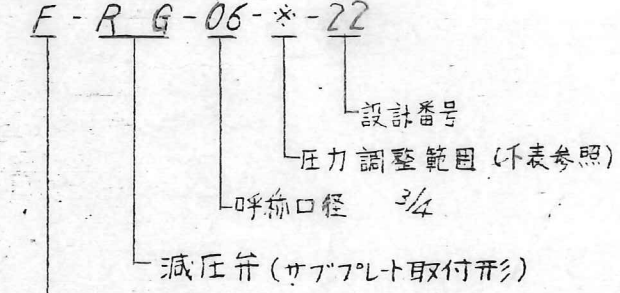 F-RG-06-※-22
設計番号
圧力調整範囲(下表参照)
呼称口径 3/4
減圧弁(サブプレート取付形)